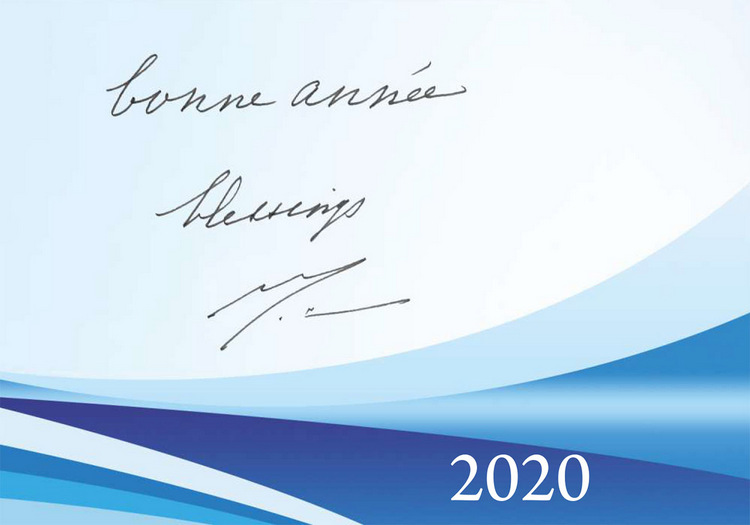 bonne année
blessings
2020